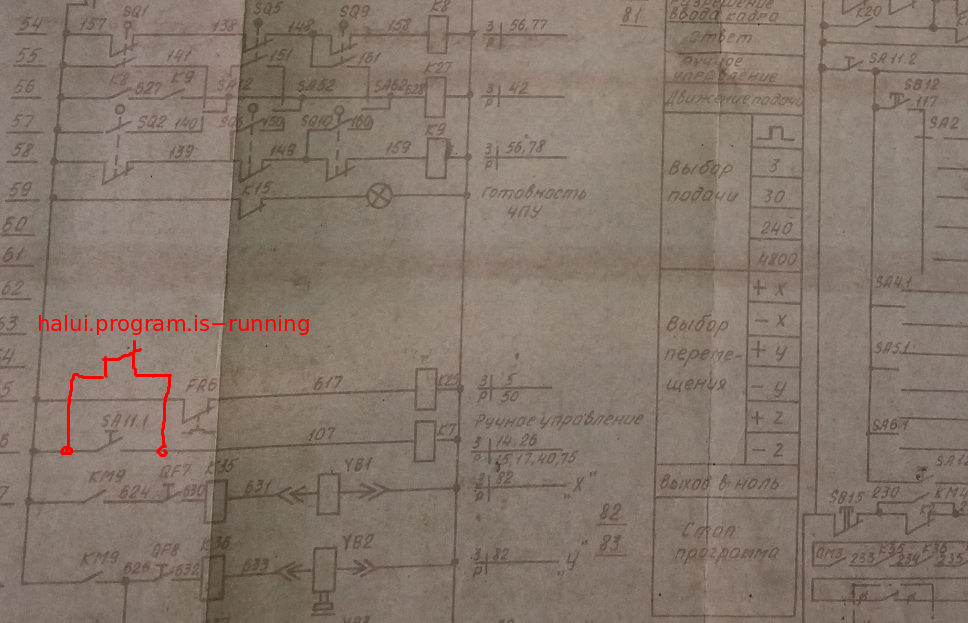 54
157
SQ1
138
SQ5
148
SQ9
158
K8
З 56,77
Р
55
141
151
161
56
K8
627
K9
SA12
SA52
SA62
628
K27
З 42
Р
57
SQ2
140
150
SQ10
160
58
139
149
159
K9
З 56,78
Р
59
K15
готовность
ЧПУ
60
61
62
halui.program.is-running
FR6
617
K25
З 5
Р 50
SA11.1
107
K7
Ручное управление
З 14,26
Р 15,17,40,75
KM9
624
QF7
630
K35
631
YB1
82
"X"
KM9
626
QF8
632
K36
633
YB2
З 82
Р
"У"
81
82
83
Разрешение
Ввода кадра
Ответ
Ручное
управление
Движение подачи
Выбор
подачи
3
30
240
4800
Выбор
переме-
щения
+ X
- X
+ У
- У
+ Z
- Z
Выход в ноль
Стоп
программа
K20
SA11.2
SB12
117
SA2
SA4.1
SA5.1
SA6.1
SB15
230
KM4
233
K35
234
K36
235